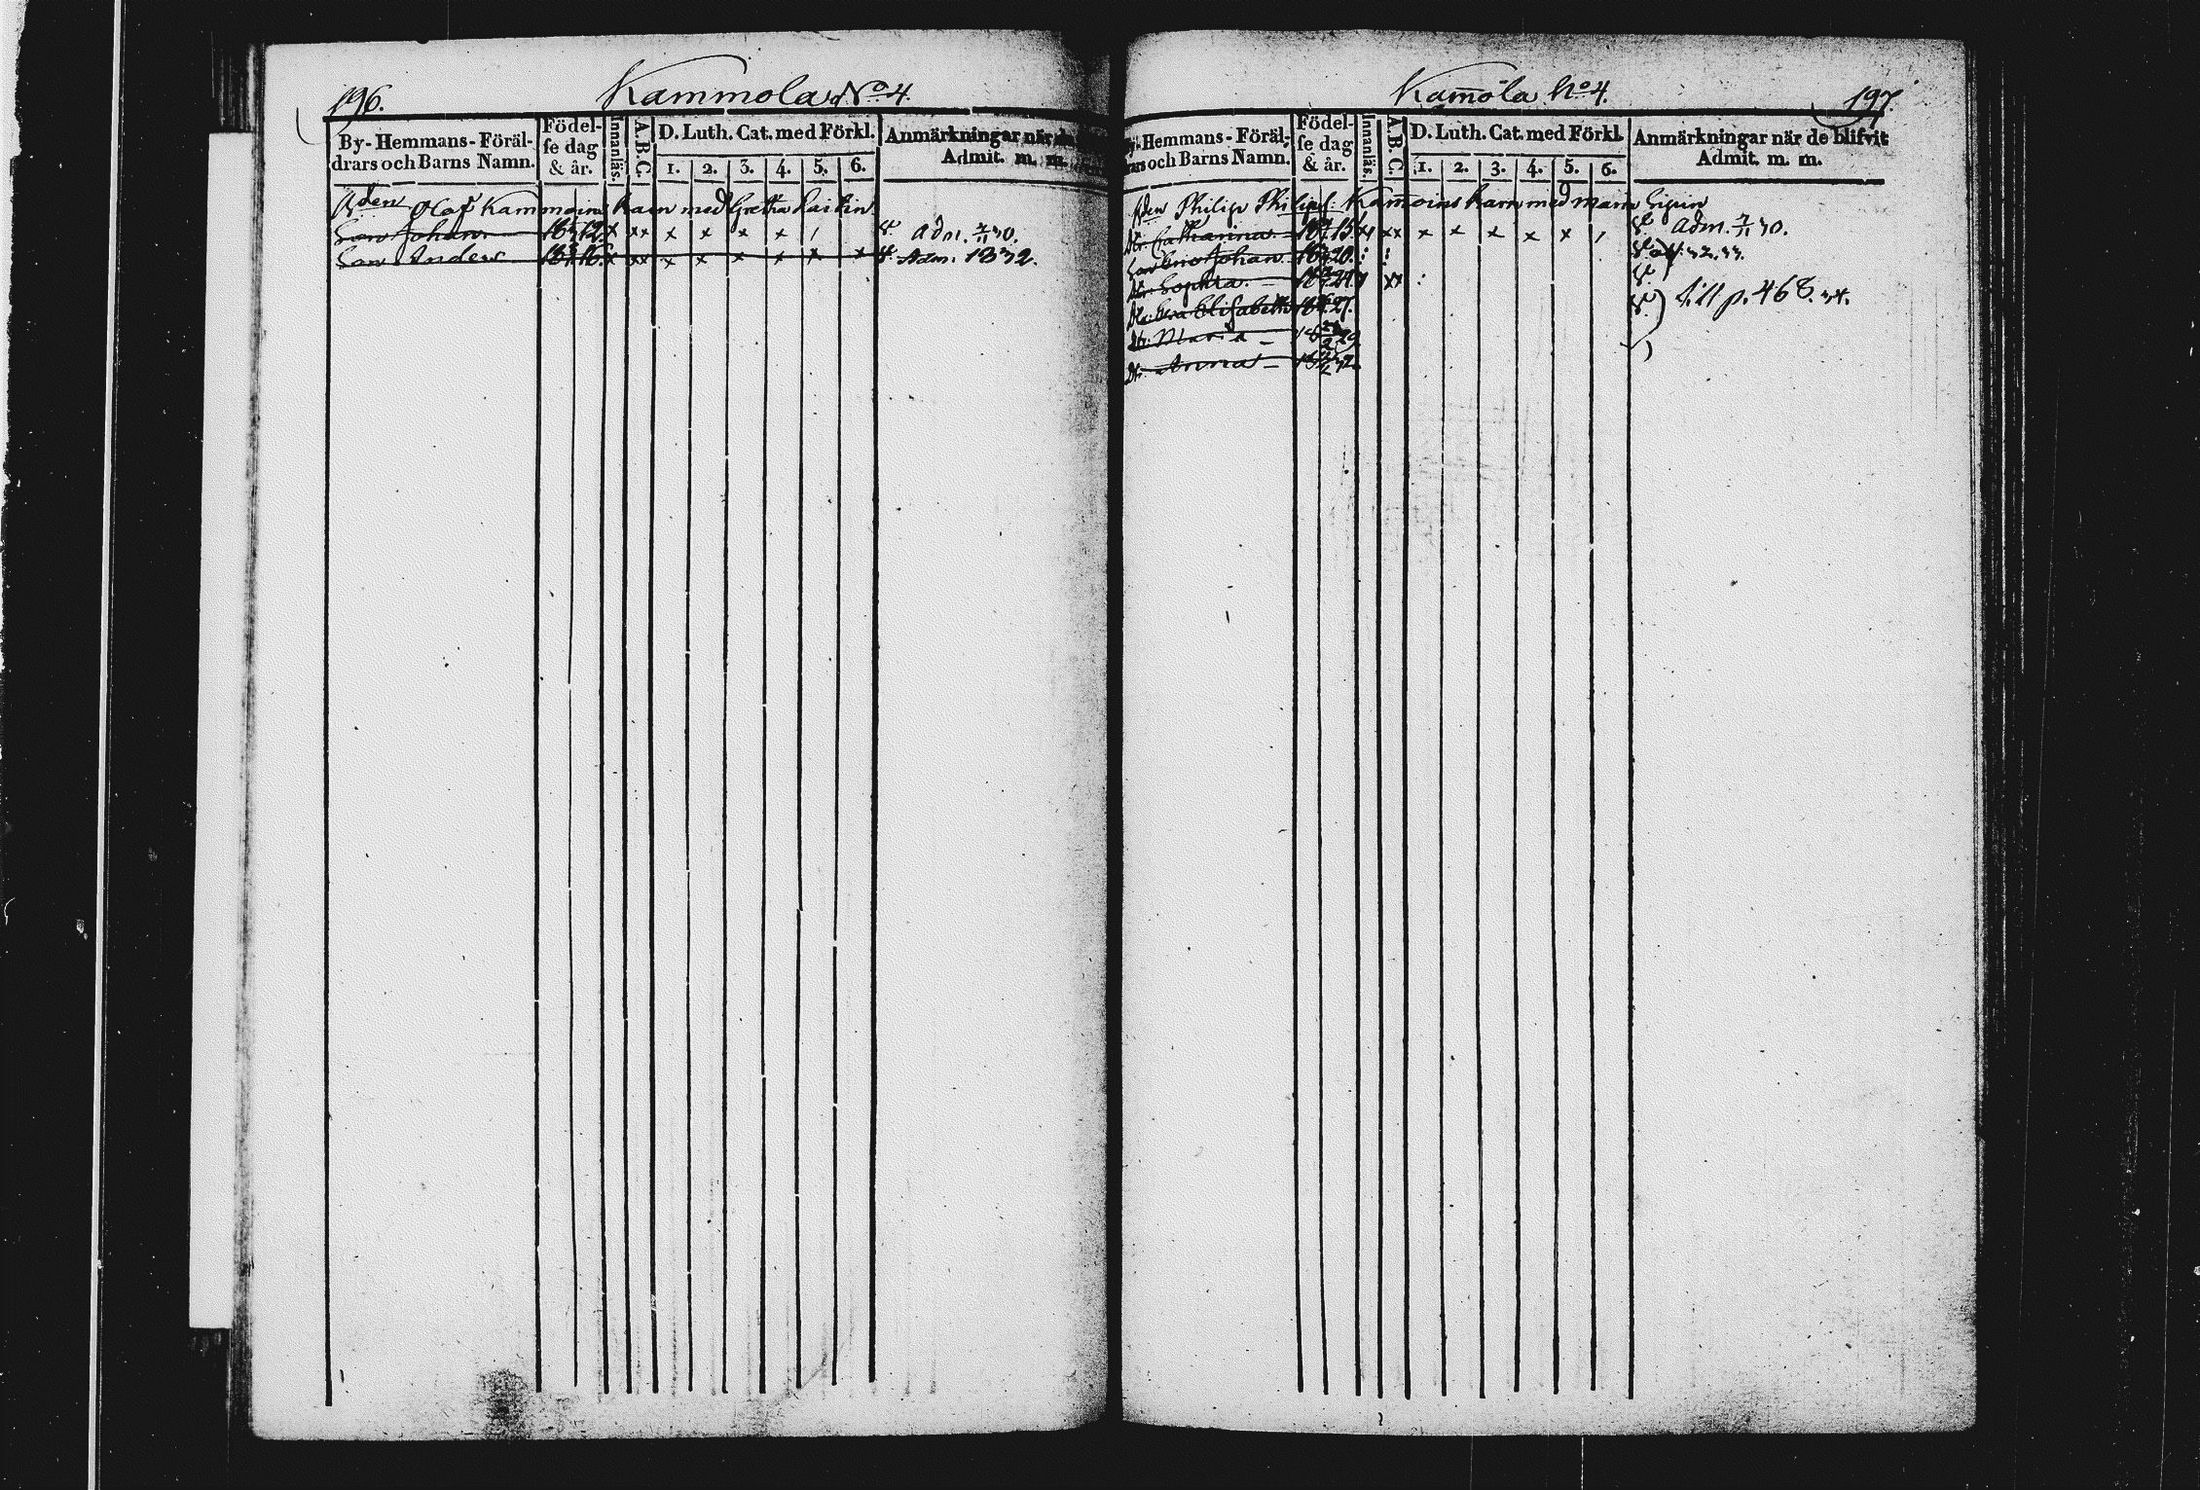 196. Kammola No 4.
By- Hemmans- Föräl-
drars och Barns Namn.
Födel-
se dag
& år.
Innanläs.
A.B.C.
D. Luth. Cat. med Förkl.
1. 2. 3. 4. 5. 6.
Anmärkningar när de
Admit. m. m.
Olof Kammoins barn med Gretha
Son Johan 12. x xx x x x x Adm. 30.
Son Anders 16. x xx x x x x x x Adm. 1832.
Kam̄ola No 4. 197.
Hemmans- Föräl-
drars och Barns Namn.
Födel-
se dag
& år.
Innanläs.
A.B.C.
D. Luth. Cat. med Förkl.
1. 2. 3. 4. 5. 6.
Anmärkningar när de blifvit
Admit. m. m.
Philip Philips: Kam̄oins barn med Maria
Dr. Catharina 15. xx x x x x x Adm. 30.
Son Johan 20.
Dr. Sophia 24. xx
Dr. Elisabeth 27. till p. 468. 34.
Dr. Maria 29
Dr. Anna 32.